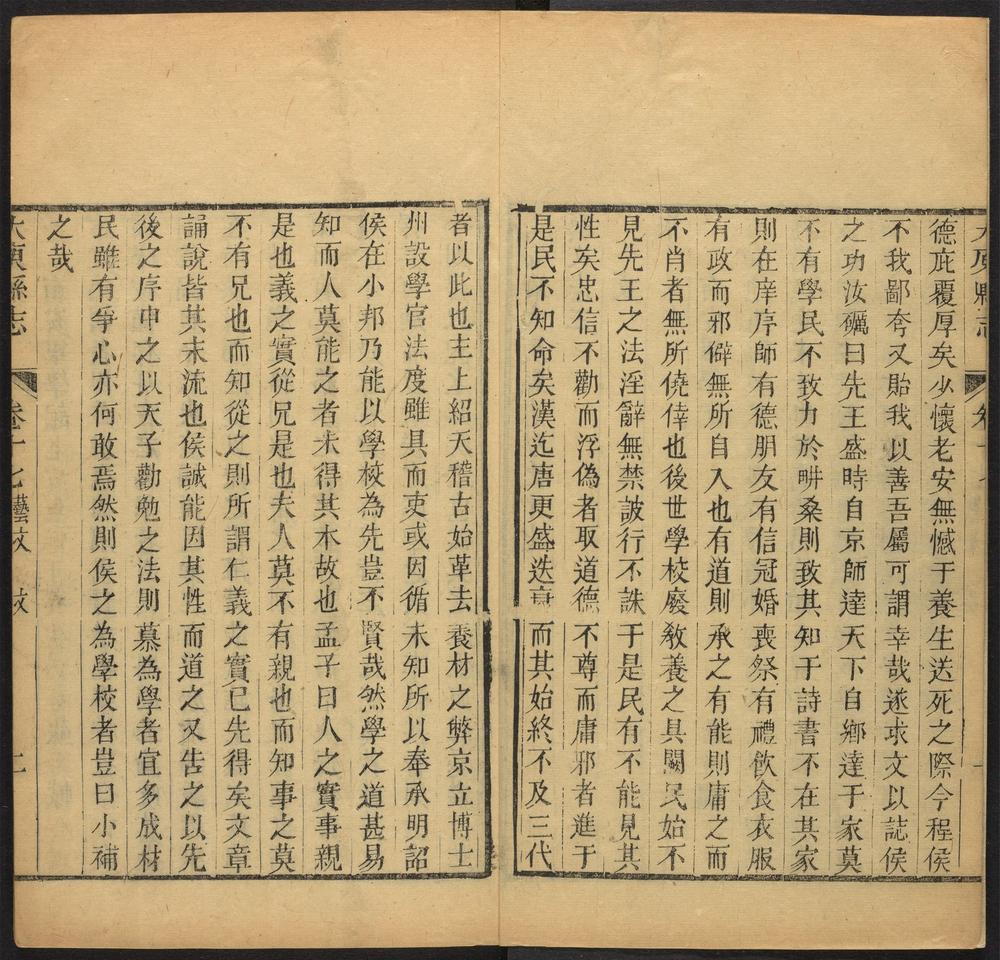 太原縣志
德庇覆厚矣少懷老安無憾于養生送死之際今程侯
不我鄙夸又貽我以善吾屬可謂幸哉遂求文以誌侯
之功汝礪曰先王盛時自京師達天下自鄉達于家莫
不有學民不致力於畊桑則致其知于詩書不在其家
則在庠序師有德朋友有信冠婚喪祭有禮飲食衣服
有政而邪僻無所自入也有道則承之有能則庸之而
不肖者無所僥倖也後世學校廢敎養之具闕民始不
見先王之法淫辭無禁詖行不誅于是民有不能見其
性矣忠信不勸而浮偽者取道德不尊而庸邪者進于
是民不知命矣漢迄唐更盛迭衰而其始終不及三代
者以此也主上紹天稽古始革去養材之弊京立博士
州設學官法度雖具而吏或因循未知所以奉承明詔
侯在小邦乃能以學校為先豈不賢哉然學之道甚易
知而人莫能之者未得其本故也孟子曰人之實事親
是也義之實從兄是也夫人莫不有親也而知事之莫
不有兄也而知從之則所謂仁義之實已先得矣文章
誦說皆其末流也侯誠能因其性而道之又告之以先
後之序申之以天子勸勉之法則慕為學者宜多成材
民雖有爭心亦何敢焉然則侯之為學校者豈曰小補
之哉
太原縣志 卷十七藝文 二